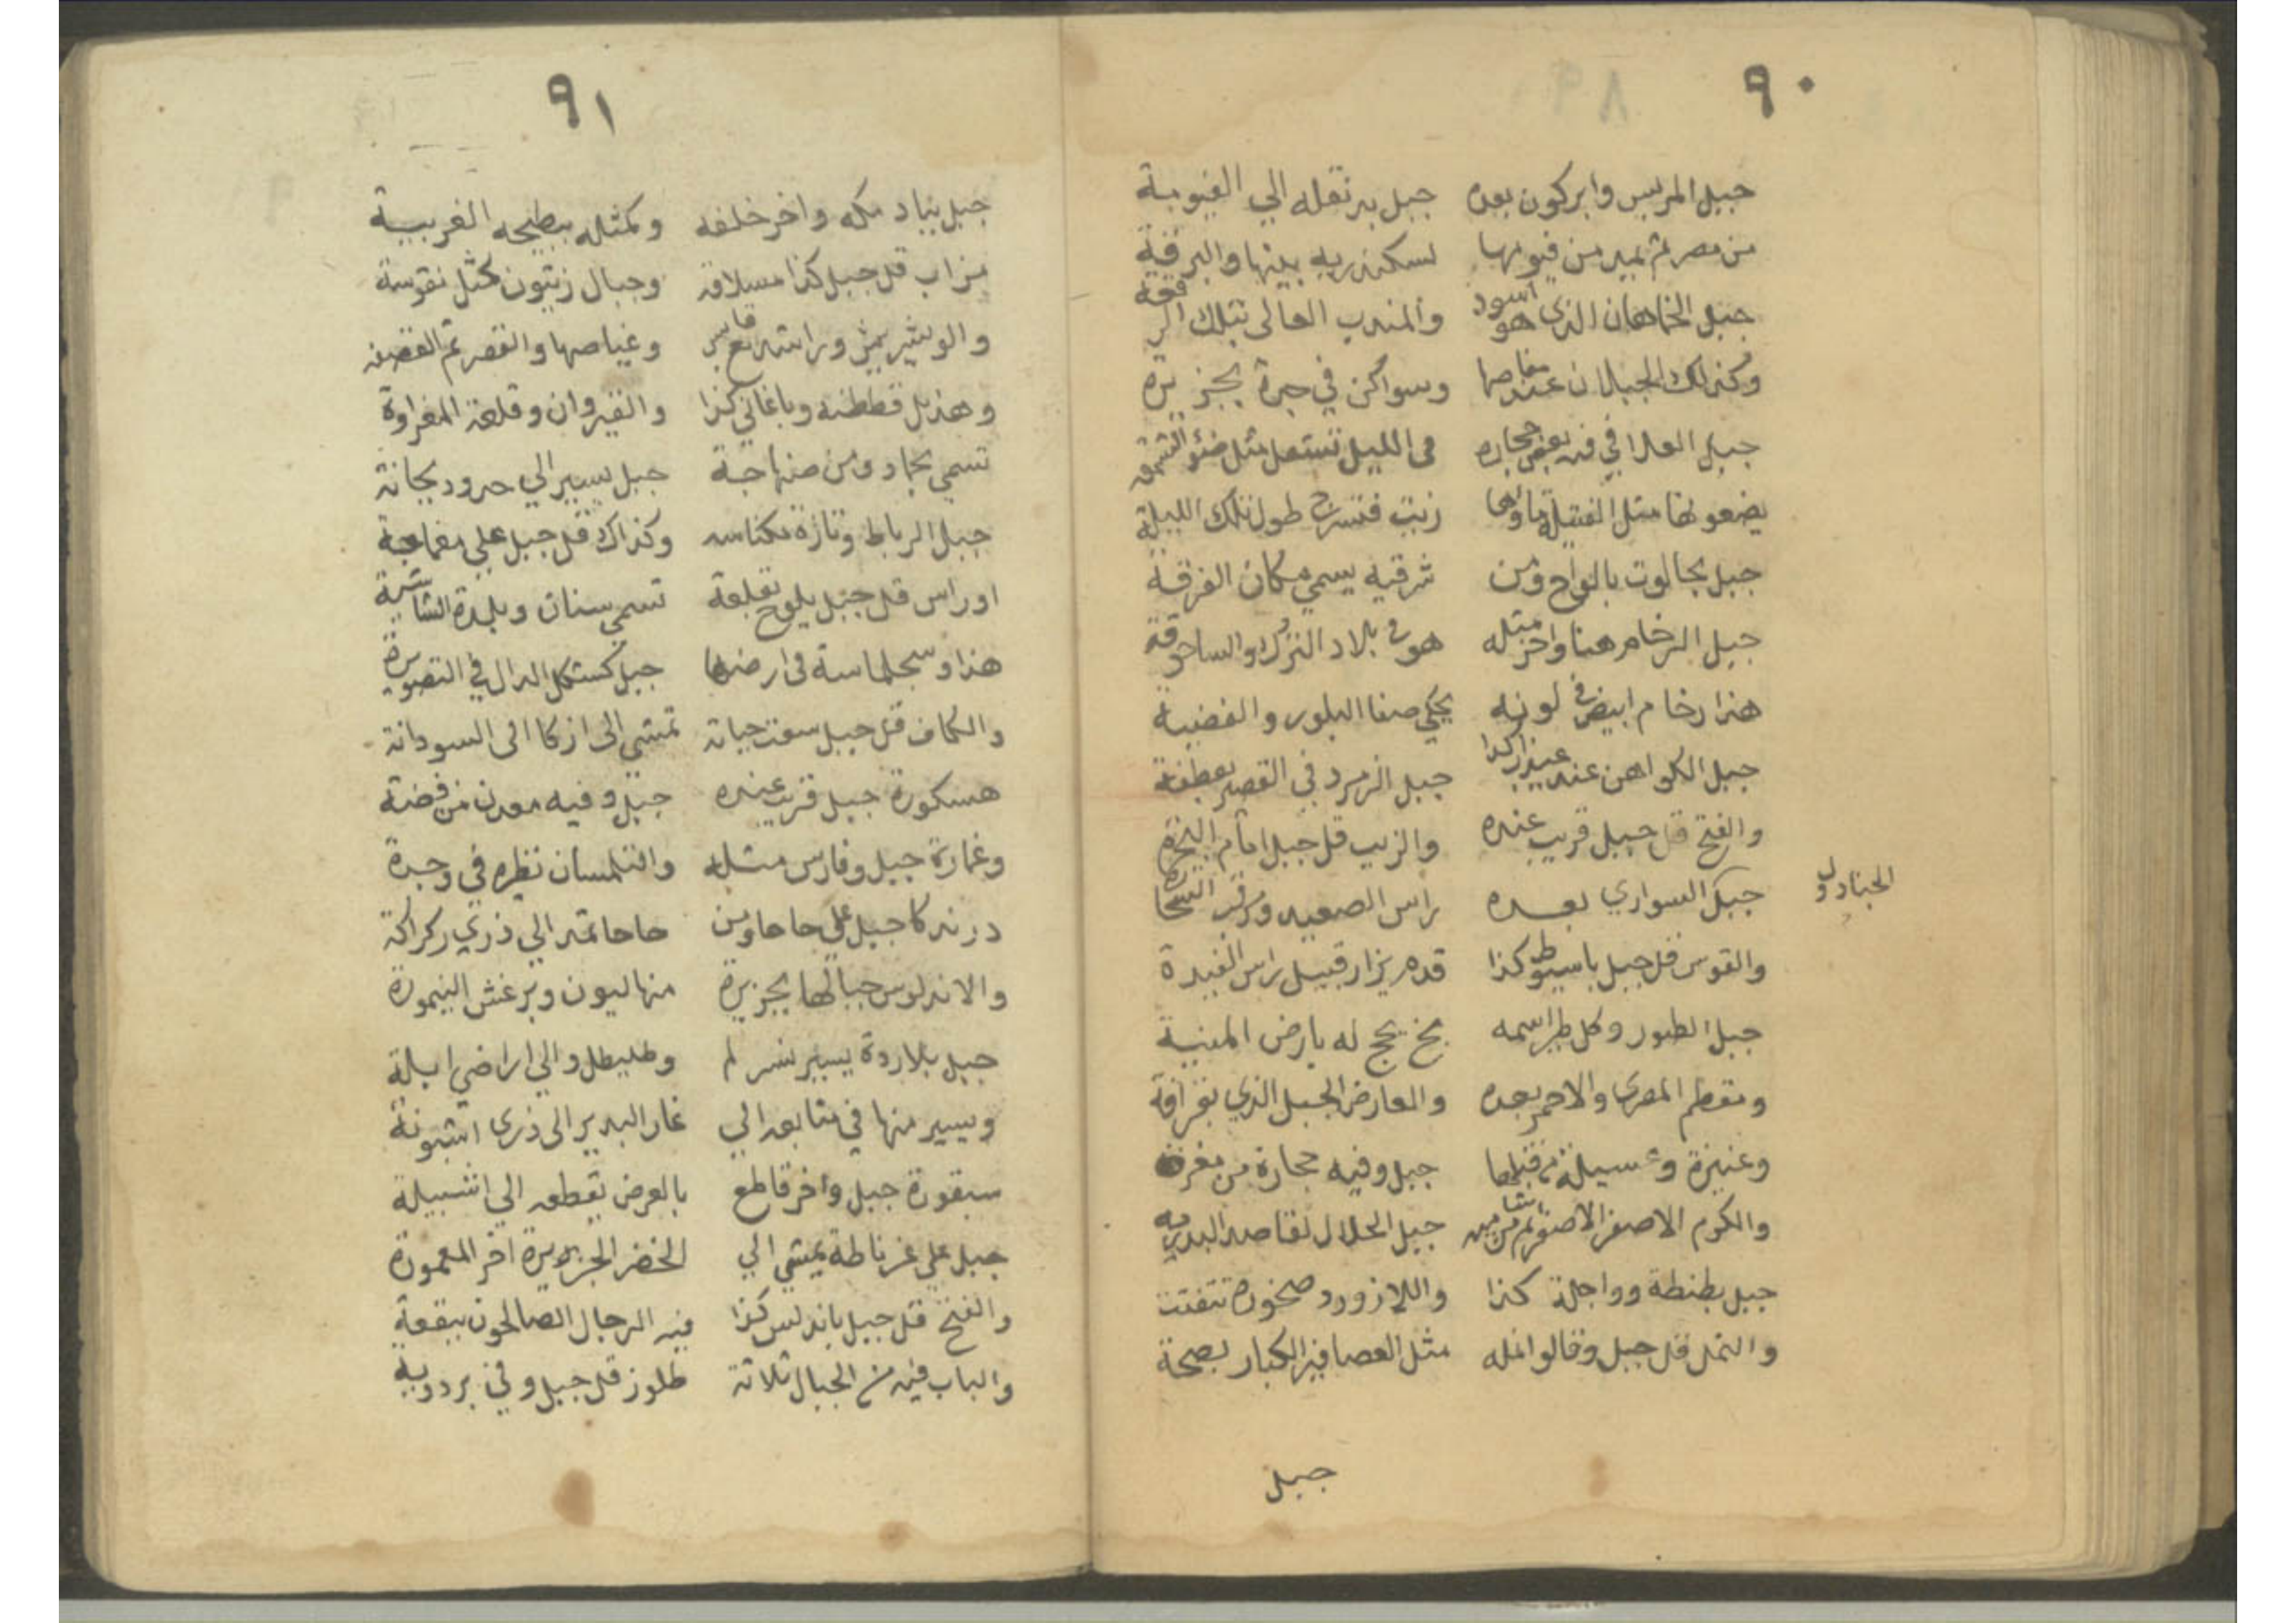 ٩٠
جبل المريس وابركون بعده جبل يرتقله الي الفيومية
من مصر ثم يمير من فيومها لسكندريه بينها والبرقية
جبل الخماهان الذى هو اسود والمندب العالى بتلك الرقعة
وكذلك الجبلان عند مغاصها وسواكن في جبرة بجزيرة
جبل العلاا في فيه بعض حجاره فى الليل تشعل مثل ضئو الشمعه
يضعونها مثل الفتيلة ماؤها زيت فتسرح طول تلك الليلة
جبل بجالوت بالواح ومن شرقيه يسمي مكان الفرقة
جبل الرخام هنا واخر مثله هو في بلاد الترك والساحوقة
هذا رخام ابيض في لونه يحكي صفا البلور والفضية
جبل الكواهن عند عيذاب كذا جبل الزمرد في القصير بعطفة
والفتح قل جبل قريب عنده والزيب قل جبل امام البحرة
جبل السواري بعده راس الصعيد ومركب الشحارة
الجنادل
والقوس قل جبل باسيوط كذا قده يزار قبيل راس الغبرة
جبل الطيور وكل طير اسمه بخ يحج له بارض المنية
ومقطم المصرى والاحمر بعده والعارض الجبل الذي بقرافة
وعنيزة وعسيلة من قبلها جبل وفيه حجارة من مغرة
والكرم الاصفر الاصفر ثم من جبل الحلال لقاصد البدريه
جبل بطنطة وواجلة كذا واللازورد صخوره تتفتت
والنمل قل جبل وقالوا نمله مثل العصافير الكبار بصحة
جبل
٩١
جبل بناد مكه واخر خلفه وكمثله ببطيحه الغربية
مزاب قل جبل كذا مسلاقه وجبال زيتون كمثل نفوسة
والونشريش وراشد مع فاس وغياصها والقصر ثم القصبه
وهذيل قططنه وباغاني كذا والقيروان وقلعة المغراوة
تسمي بجاد ومن صنهاجة جبل يسير الي حدود بجانة
جبل الرباط وتازة مكناسه وكذاك قل جبل علي مغماعية
اوراس قل جبل يلوح بقلعة تسمي سنان وبلدة الشاشية
هذا وسجلماسة فى ارضها جبل كشكل الدال في التصويرة
والكاف قل جبل سقت حياته تمشي الى ازكا الى السودانة
هسكورة جبل قريب عنده جبل وفيه معدن من فضة
وغمارة جبل وفارس مثله والتلمسان نظيره في وجدة
درنه كا جبل علي حاحا ومن حاحا تمتد الي ذري ركراكة
والاندلوس جبالها بجزيرة منها ليون وبرغش النيمورة
جبل بلاردة يسير بنسر لم وطليطل والي اراضي ابلة
ويسير منها في متابعه الي غار البدير الى ذرى اشبونة
سبقورة جبل واخر قاطع بالعرض يقطعه الي اشبيلة
جبل علي غرناطة يمشي الي الخضر الجزيرة اخر المعمورة
والفتح قل جبل باندلس كذا فيه الرجال الصالحون ببقعة
والباب فيه من الجبال ثلاثة طلوز قل جبل وفي بردوية